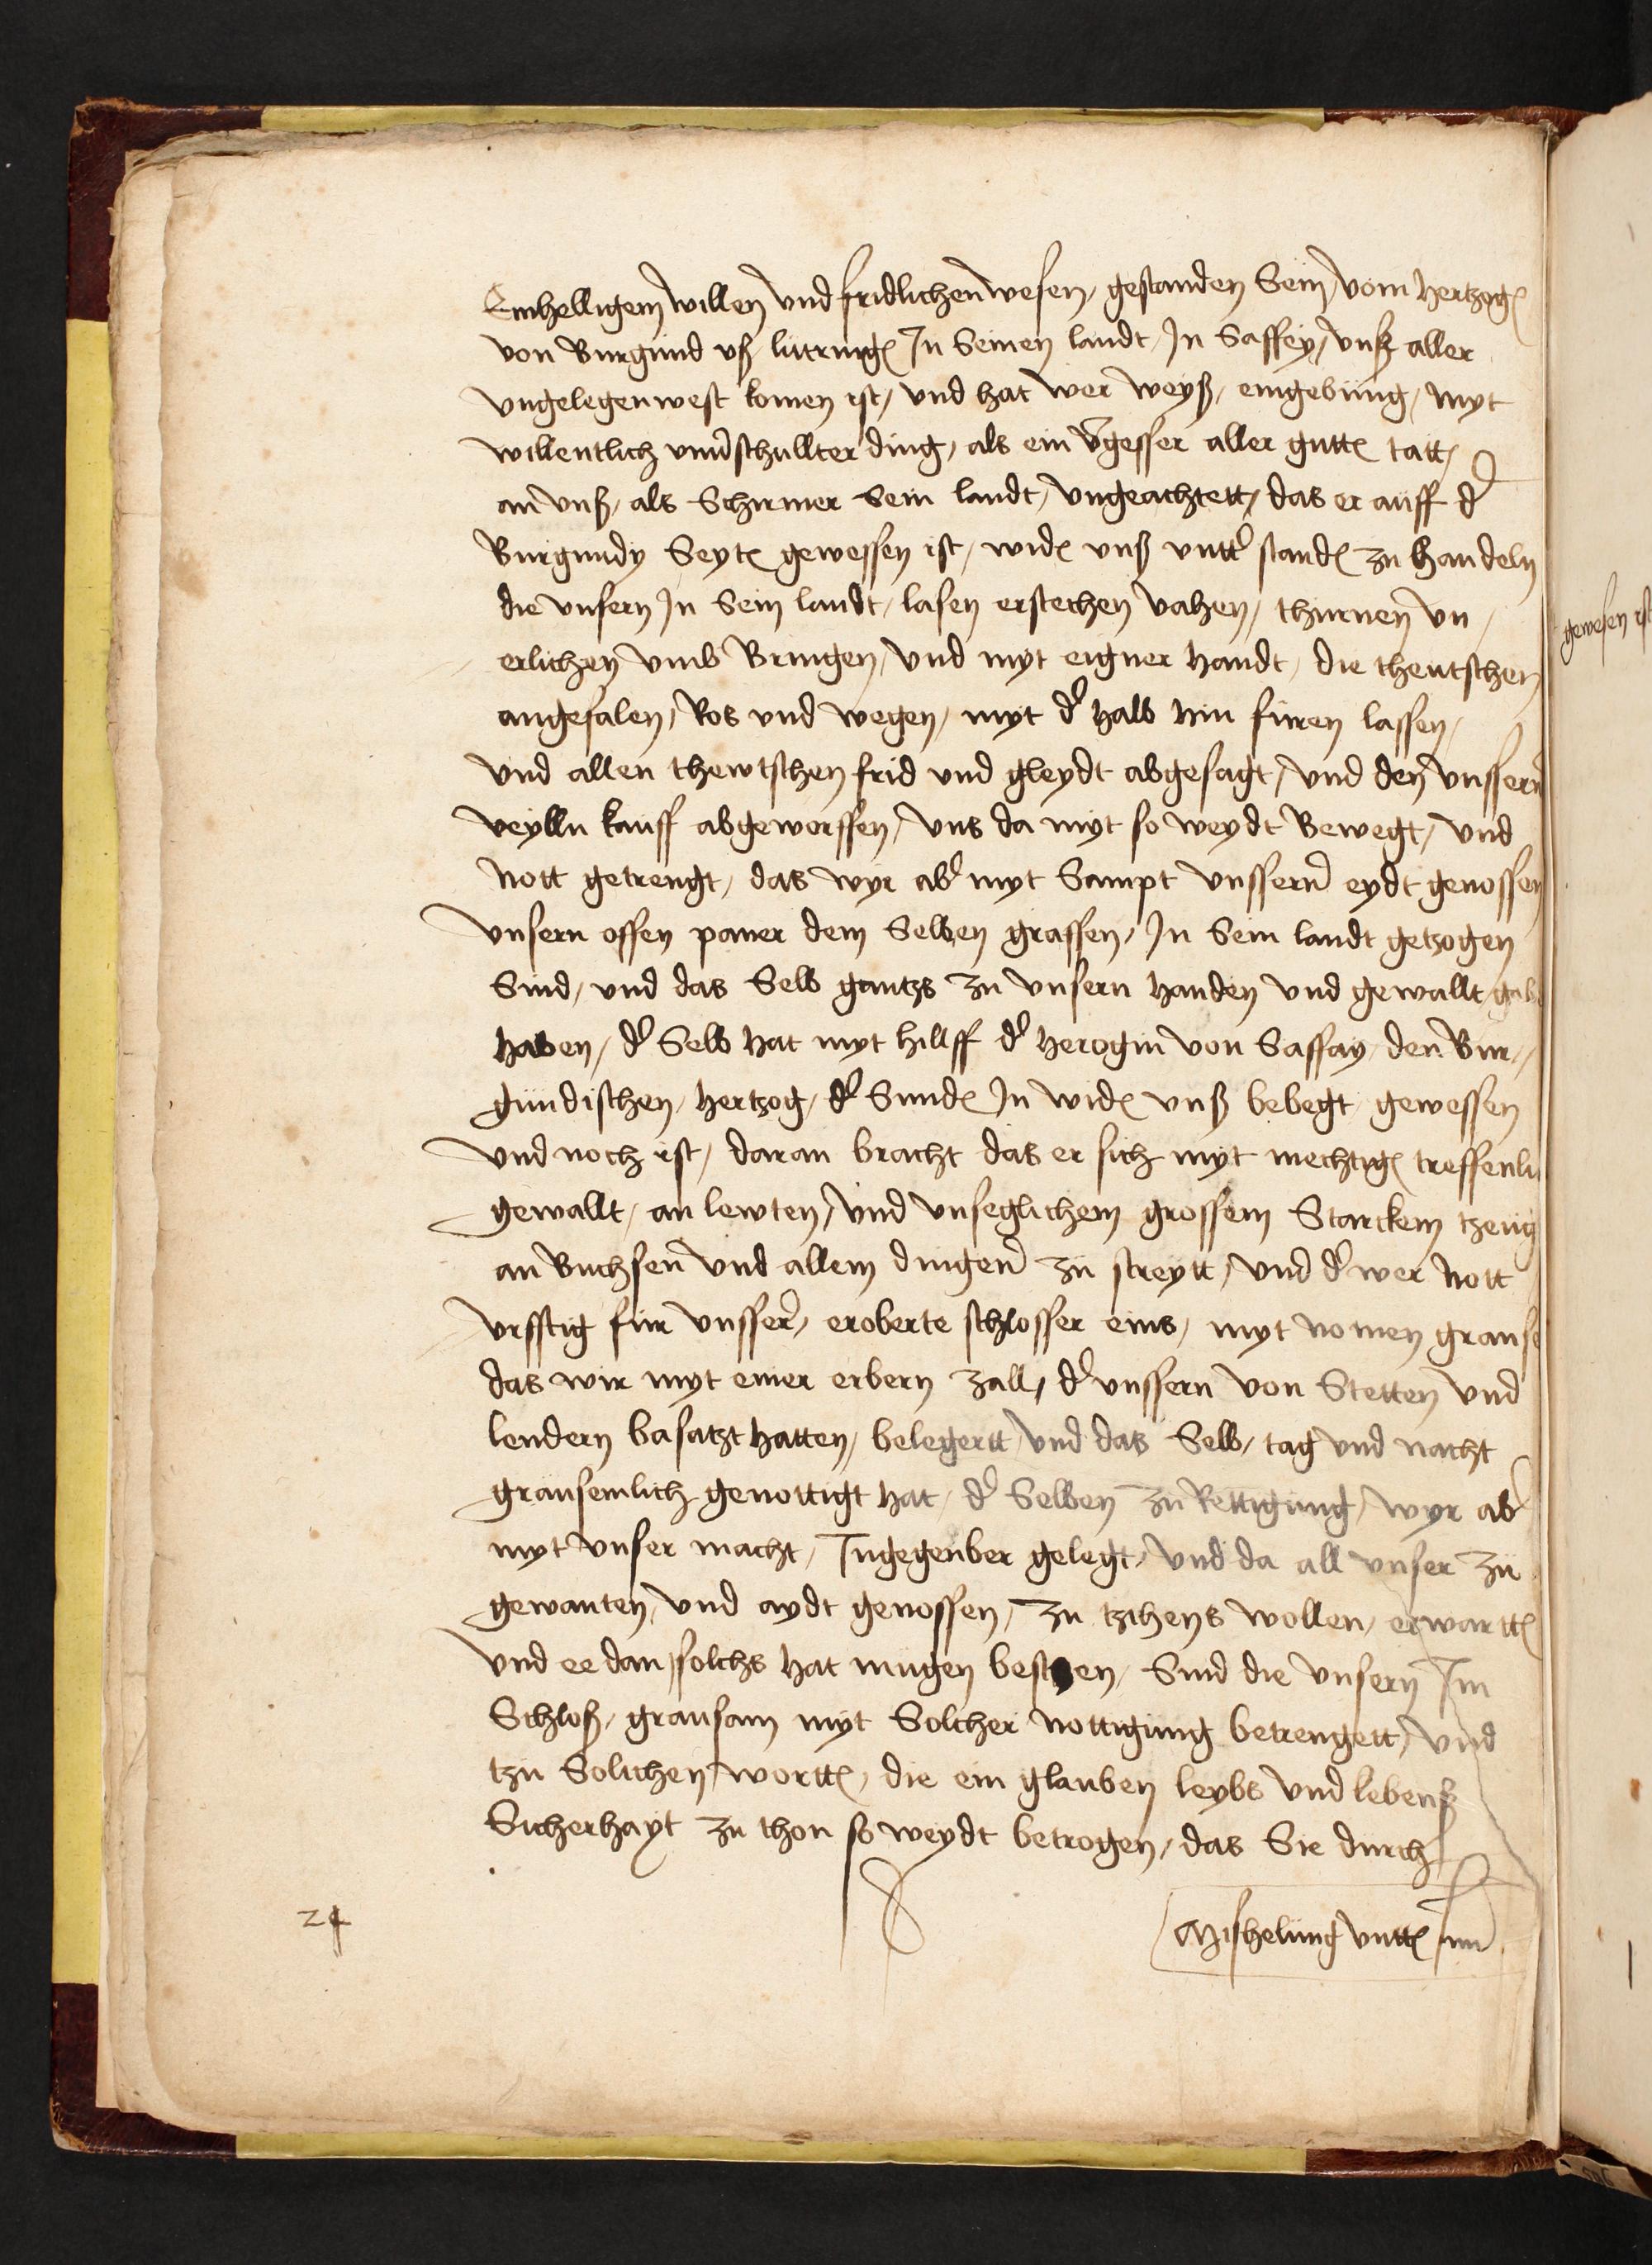 Einhelligem willen vnd fridlichen wesen / gestanden Sein / vom hertzog
von Burgund vß lutring In Seinen landt / In Saffoy / vnß aller
vngelegenwest komen ist / vnd hat wer weyß / eingebung / myt
willentlich vnuerschullter ding / als ein v̄gesser aller gutt tatt /
an vnß / als Schirmer Sein landt / vngeachtett / das er auff d̓
Burgundy Seyt gewessen ist / wid vnß vntt̓ stand zu handeln
die vnsern In Sein landt / lasen erstechen vahen / thurnen vn
erlichen vmb Bringen / vnd myt eigner handt / die theutschen
angefalen / Ros vnd wegen / myt d̓ halb hin furen lassen /
vnd allen thewtschen frid vnd gleydt abgesagt / vnd den vnssern
veylln kauff abgeworffen / vns da myt so weydt Bewegt / vnd
Nott getrengt / das wyr ab̓ myt Sampt vnssern eydt genossen
vnsern offen paner dem Selben graffen / In Sein landt getzogen
Sind / vnd das Selb gantzs zu vnsern handen vnd gewallt
haben / d̓ Selb hat myt hillff d̓ herogin von Saffay / den Bur //
gundischen / hertzog / d̓ Sund In wid vnß bebegt / gewessen
vnd noch ist / daran bracht das er sich myt mechtig treffenli
gewallt / an lewten / vnd vnseglichem grossem Starckem tzeug
an Buchsen vnd allem dingen zu streytt / vnd d̓ wer Nott
vrsstig fur vnsser̓ / eroberte schlosser eins / myt nomen grans
das wir myt einer erbern zall / d̓ vnssern von Stetten vnd
lendern basatzt hatten / belegertt / vnd das Selb / tag vnd nacht
grausemlich genottigt hat / d̓ Selben zu Rettigung / wyr ab̓
myt vnser macht / Ingegenber gelegt / vnd da all vnser zu
gewanten / vnd aydt genossen / zu tzihens wollen / erwartt
vnd ee dan / solchs hat mugen besten / Sind die vnsern Im
Schloß / grausam myt Solcher nottigung betrengett / vnd
tzu Solichen wortt / die ein glauben leybs vnd lebenß
Sicherhayt zu thon so weydt betrogen / das Sie durch
Mishelung vntt im
24
gewesen ist